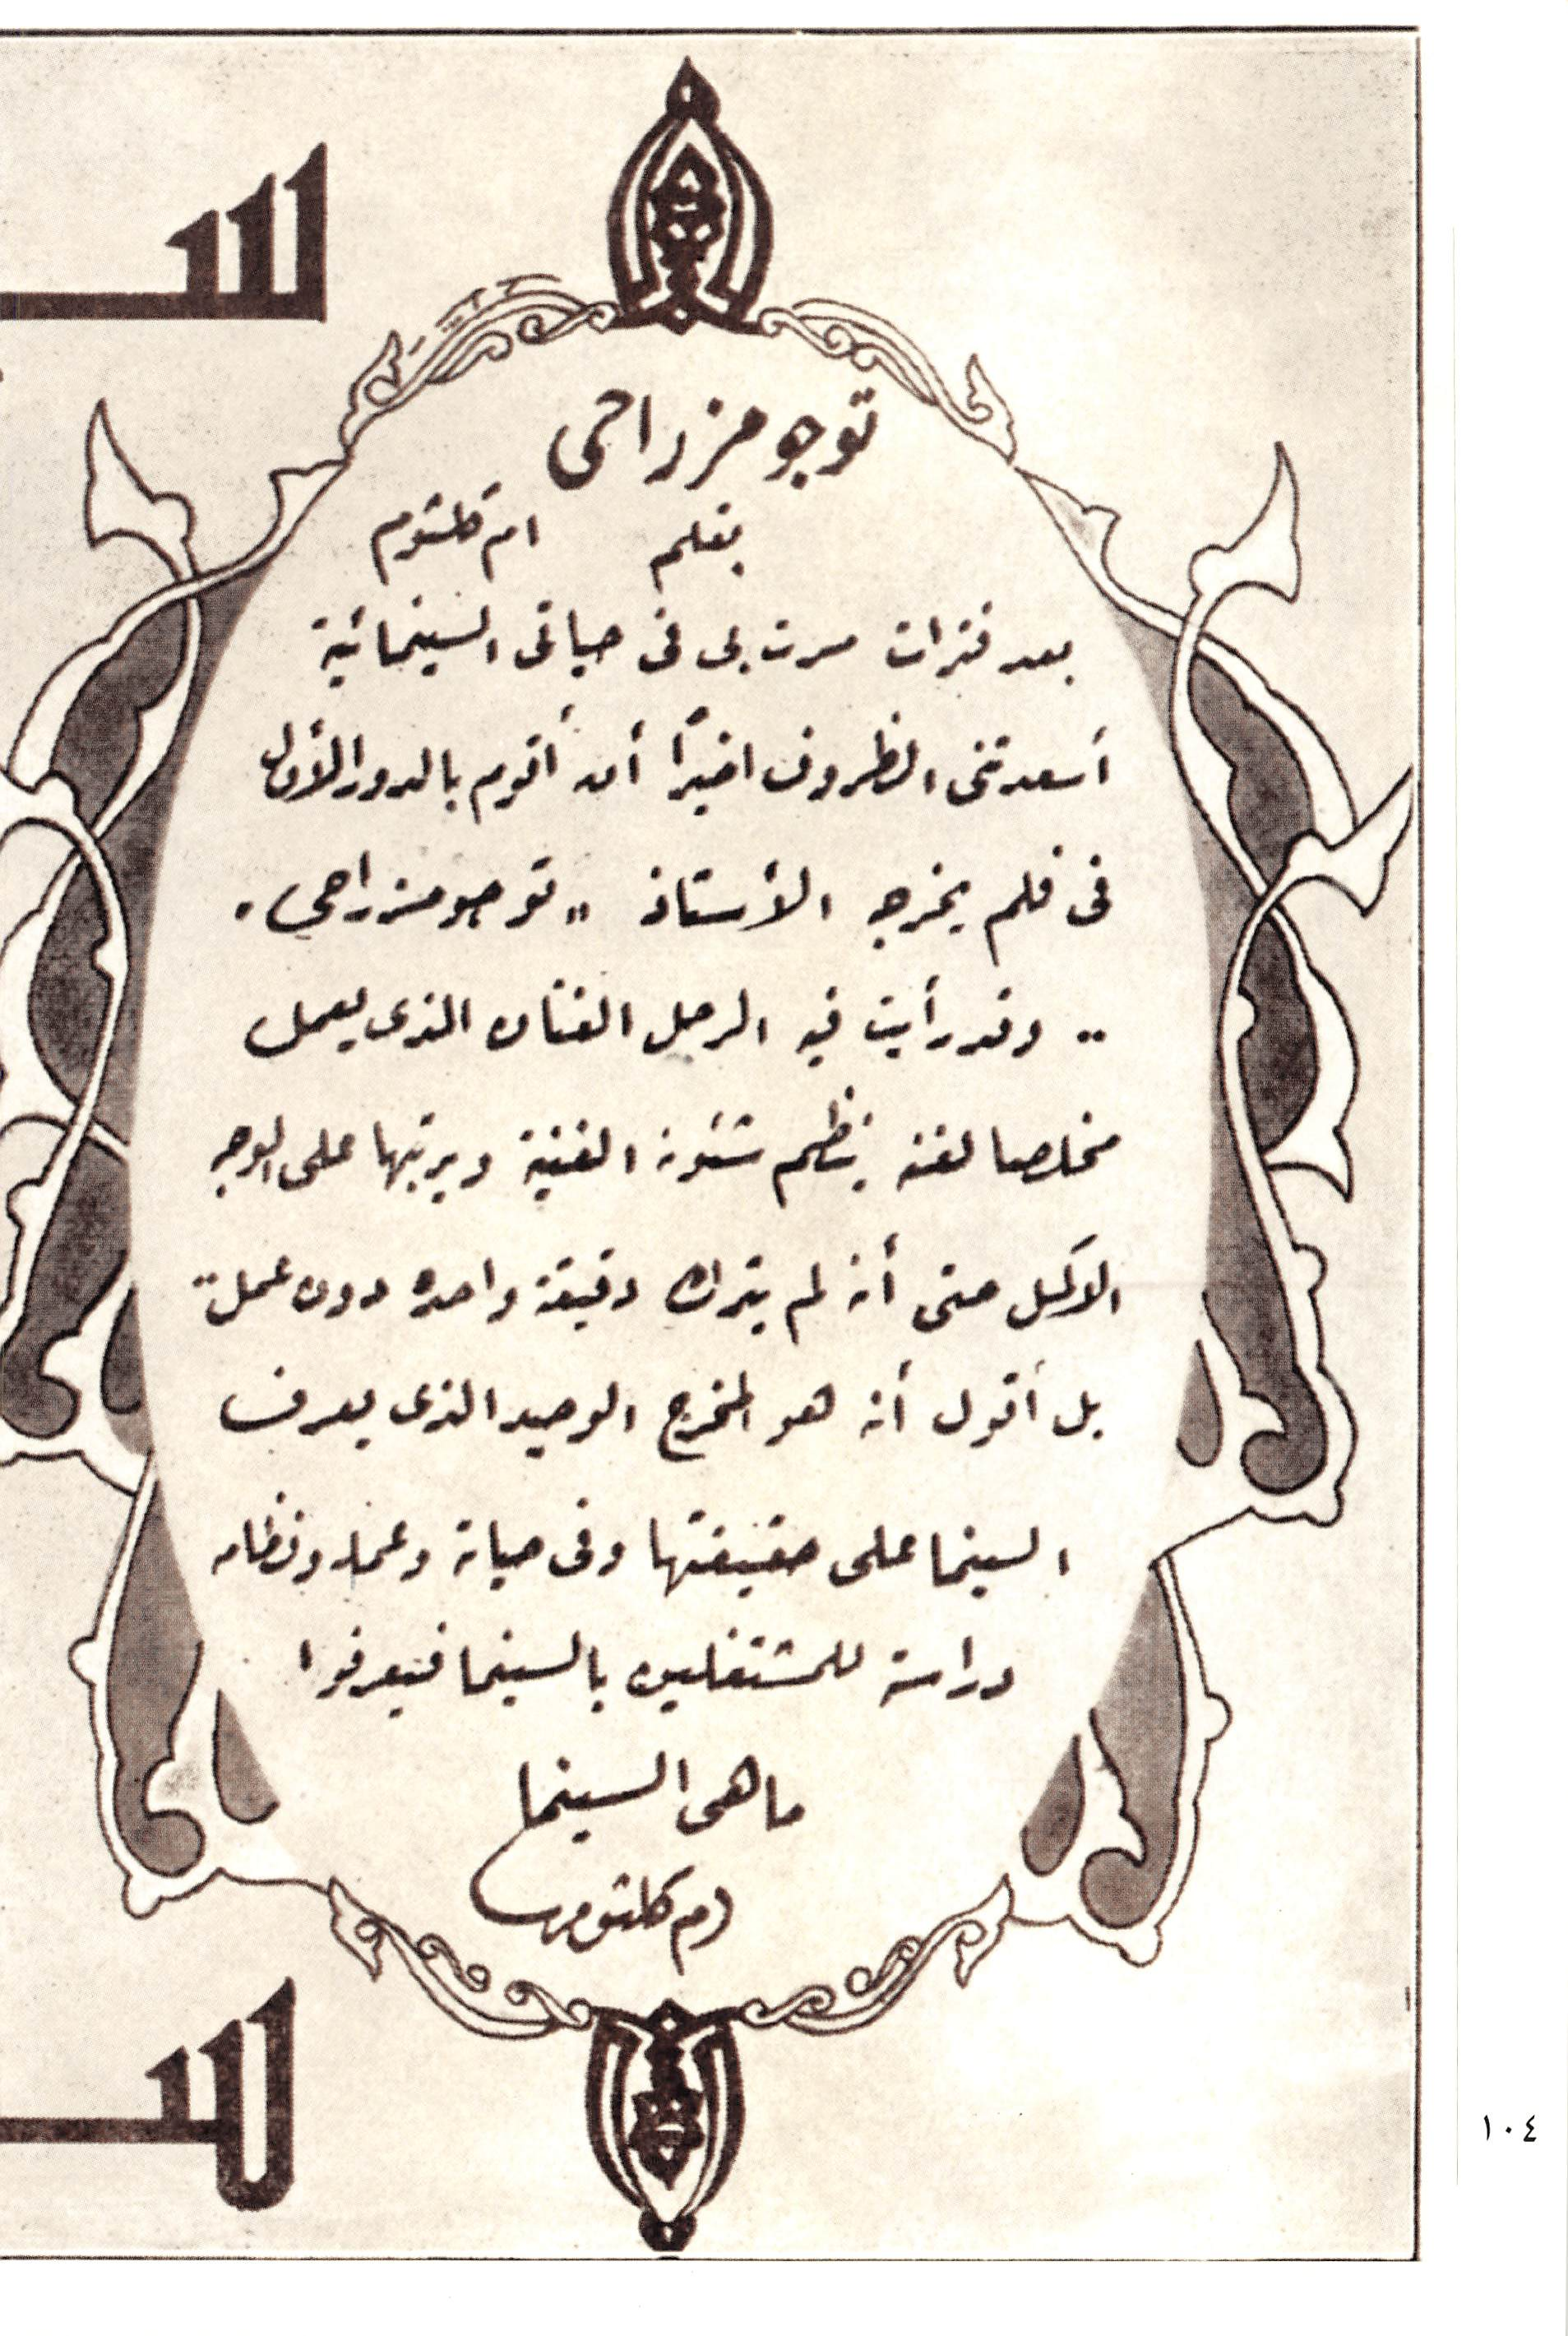 توجو مزراحى
بقلم ام كلثوم
بعد فترات مرت بى فى حياتى السينمائية
أسعدتنى الظروف اخيرًا أن أقوم بالدور الأول
فى فلم يخرجه الأستاذ "توجو مزراحى"
.. وقد رأيت فيه الرجل الفنان الذى يعمل
مخلصا لفنه ينظم شئونه الفنية ويرتبها على الوجه
الاكمل حتى أنه لم يترك دقيقة واحده دون عمل ..
بل أقول أنه هو المخرج الوحيد الذى يعرف
السينما على حقيقتها وفى حياته وعمله ونظامه
دراسة للمشتغلين بالسينما فيعرفوا
ما هى السينما
ام كلثوم
١٠٤